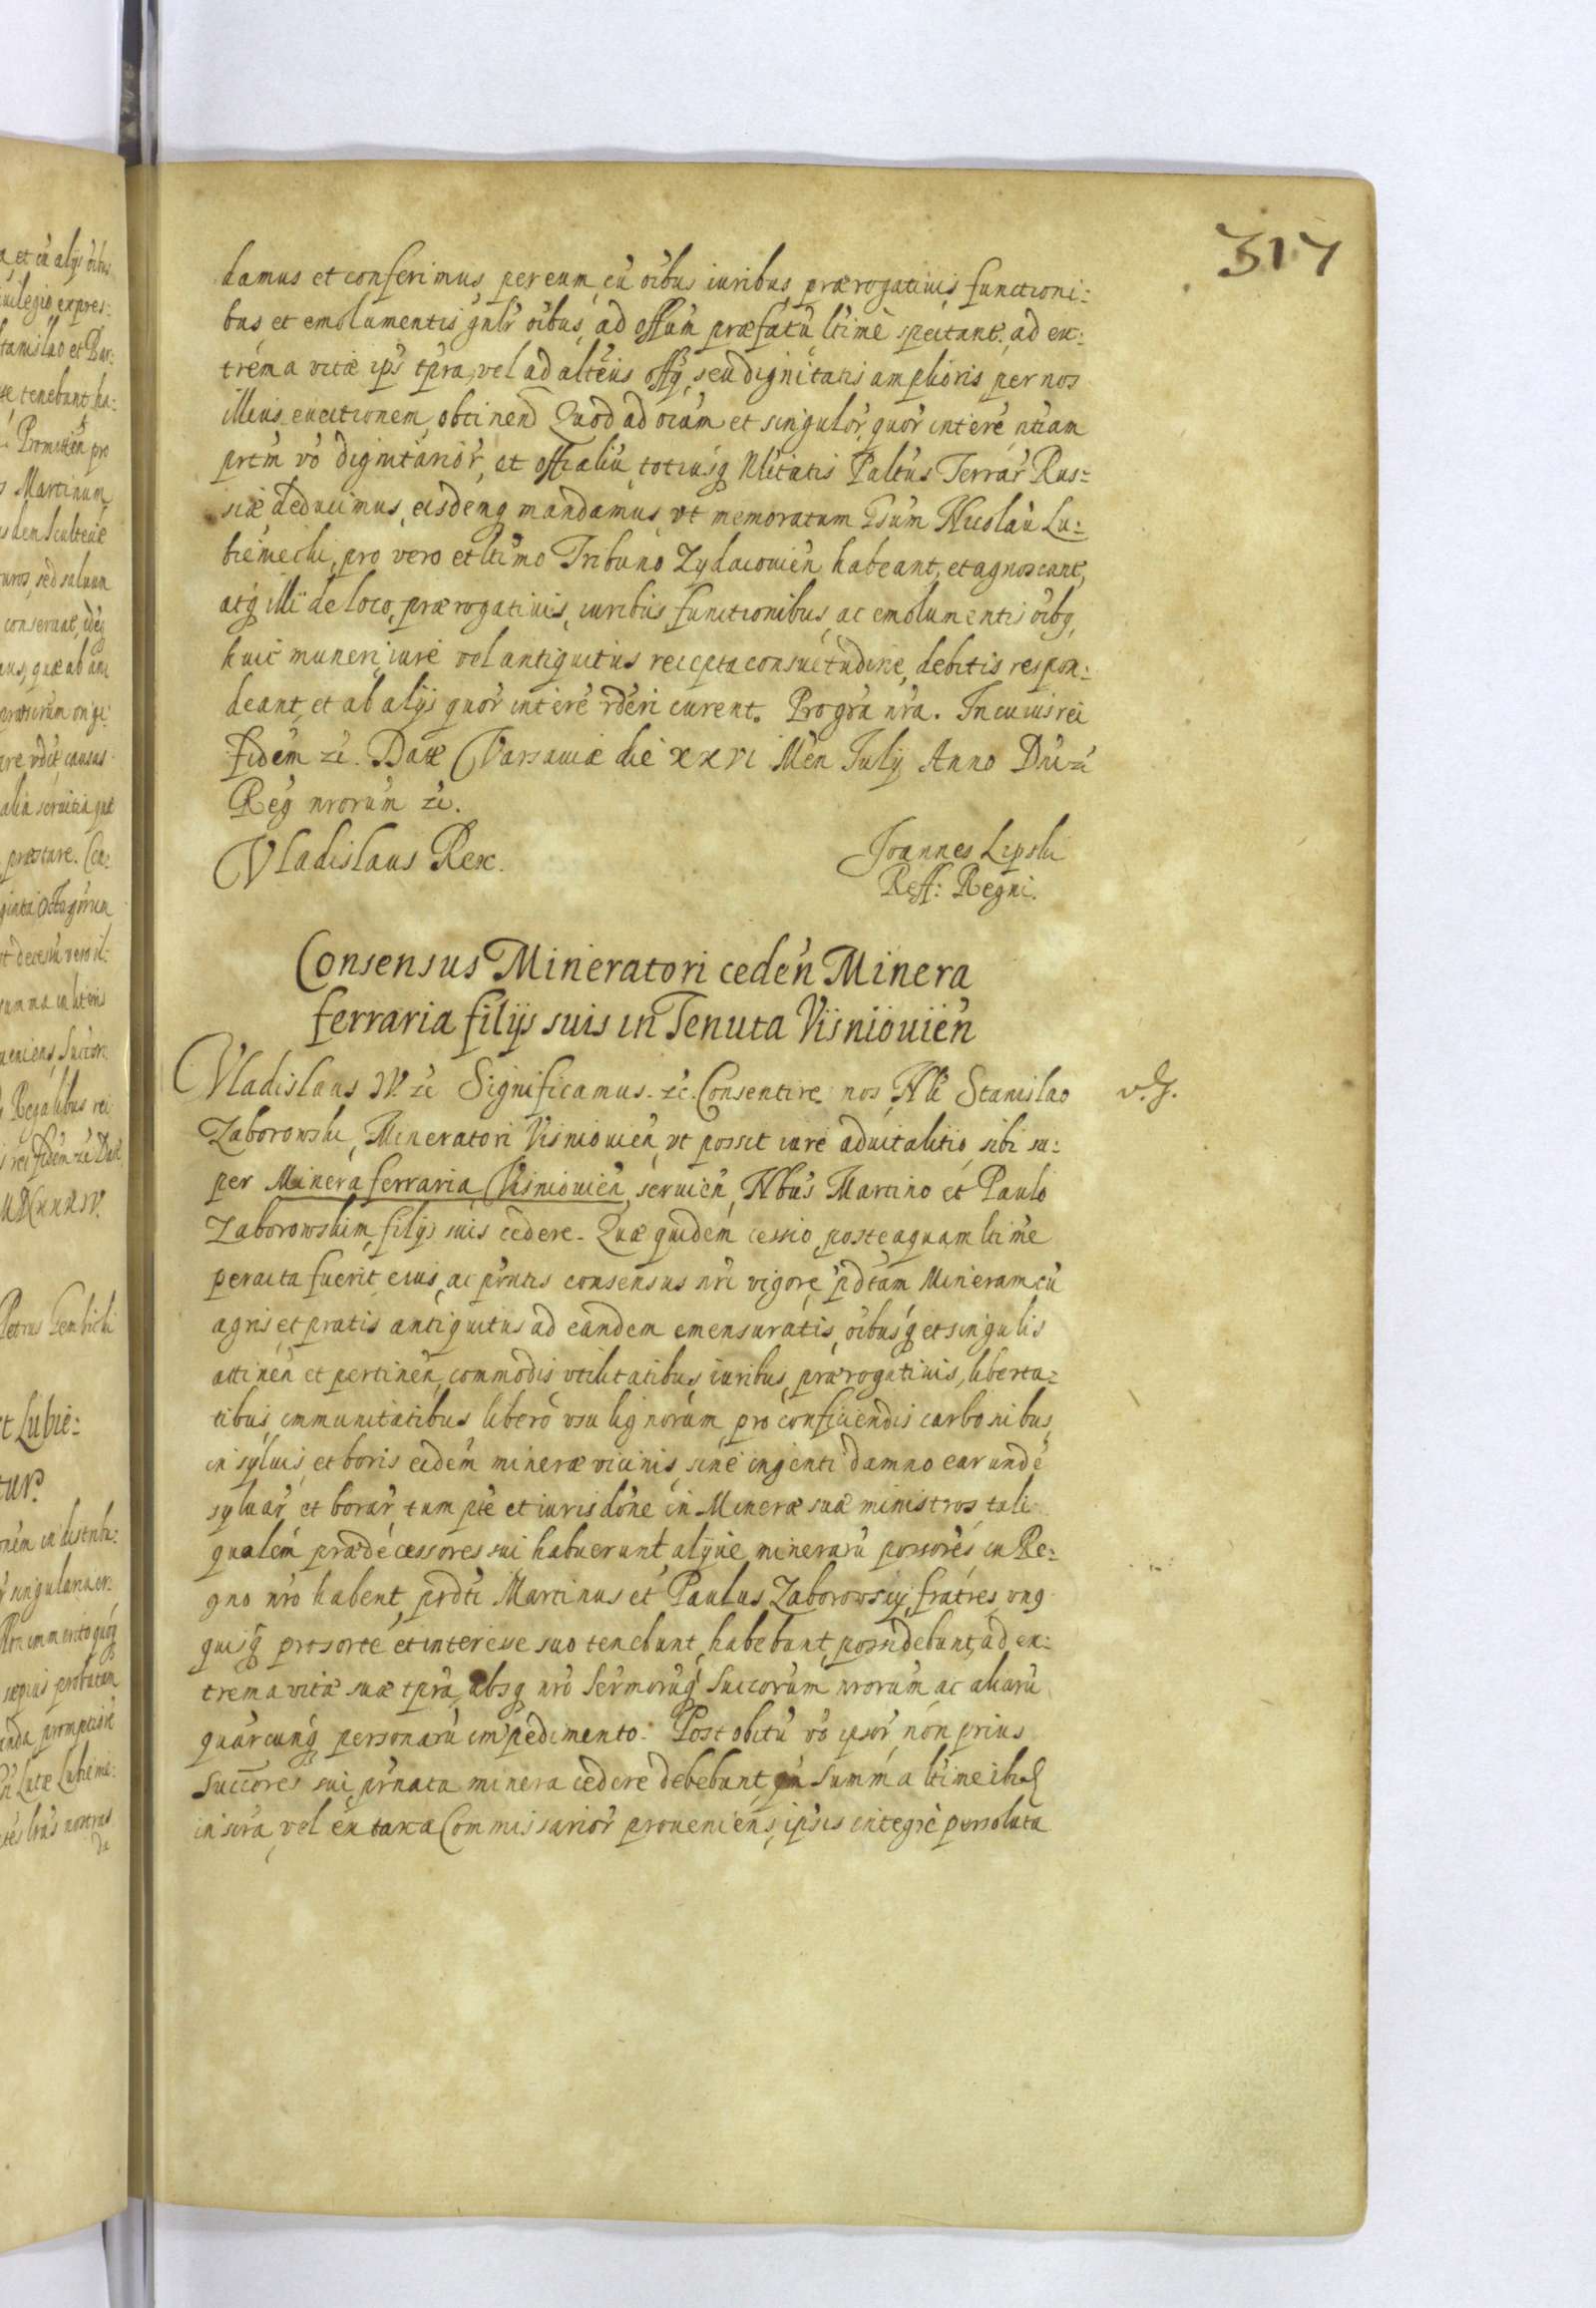 317
damus et conferimus per eum, cũ oĩbus iuribus, prærogatiuis, functioni:
bus et emolumentis gñlr oĩbus, ad offũm præfatũ ltimè spectant. ad ex:
trema vitæ ips tp̃ra, vel ad alterius offÿ, seu dignitatis amplioris per nos
illius euectionem, obtinend Quod ad oĩum et singulor̃, quor̃ interẽ ntiam
prtm vo dignitarior̃, et offialiũ, totiusq̃ Nlitatis Paltus Terrar̃ Rus:
siæ deducimus, eisdemq̃ mandamus, vt memoratum Gsum Nicolaũ Lu:
bieniecki, pro vero et ltimo Tribuno Zydaczouieñ habeant, et agnoscant,
atq̃ illi de loco, prærogatiuis, iuribus, functionibus, ac emolumentis oĩbq,
huic muneri, iure vel antiquitus recepta consuetudine, debitis respon:
deant, et ab alijs quor̃ interẽ rderi curent. Pro gra nra. In cuius rei
fidem zc. Datæ Varsauiæ die xxvi Men July Anno Dni zc
Reg nrorum zc.
Vladislaus Rex.
Joannes Lipski
Reff: Regni.
Consensus Mineratori cedeñ Minera
ferraria filijs suis in Tenuta Visniouień
Vladislaus IV zc Significamus. zc. Consentire nos, Nli Stanislao
v. g.
Zaborowski, Mineratori Visniouień, vt possit iure aduitalitio, sibi su:
per Minera ferraria Visniouień, seruień, Nbus Martino et Paulo
Zaborowskim, filijs suis cedere. Quæ quidem cessio, posteaquam ltime
peracta fuerit, eius, ac prntis consensus nri vigore, pdtam Mineram, cũ
agris, et pratis antiquitus ad eandem emensuratis, oĩbusq̃ et singulis
attineñ et pertineñ, commodis vtilitatibus, iuribus, prærogatiuis, liberta:
tibus, immunitatibus libero vsu lignorum, pro conficiendis carbonibus,
in syluis, et boris eidem mineræ vicinis, sine ingenti damno earundẽ
syluar̃, et borar̃, tum pte et iurisdone in Mineræ suæ ministros tali
qualem prædecessores sui habuerunt, alijue, minerarũ possores in Re:
gno nro habent, prdti Martinus et Paulus Zaborowscy, fratres, vnq
quisq̃ pro sorte et interesse suo tenebunt, habebunt, possidebunt, ad ex:
trema vitæ suæ tp̃ra, absq̃ nro Sermorũq̃ Succorum nrorum, ac aliarũ
quarcunq̃ personarũ impedimento. Post obitũ vo ipsor̃, non prius
Succores sui, prnata minera cedere debebunt, qũ summa ltime
inscra, vel ex taxa Commissarior̃ proueniens, ipsis integrè persoluta